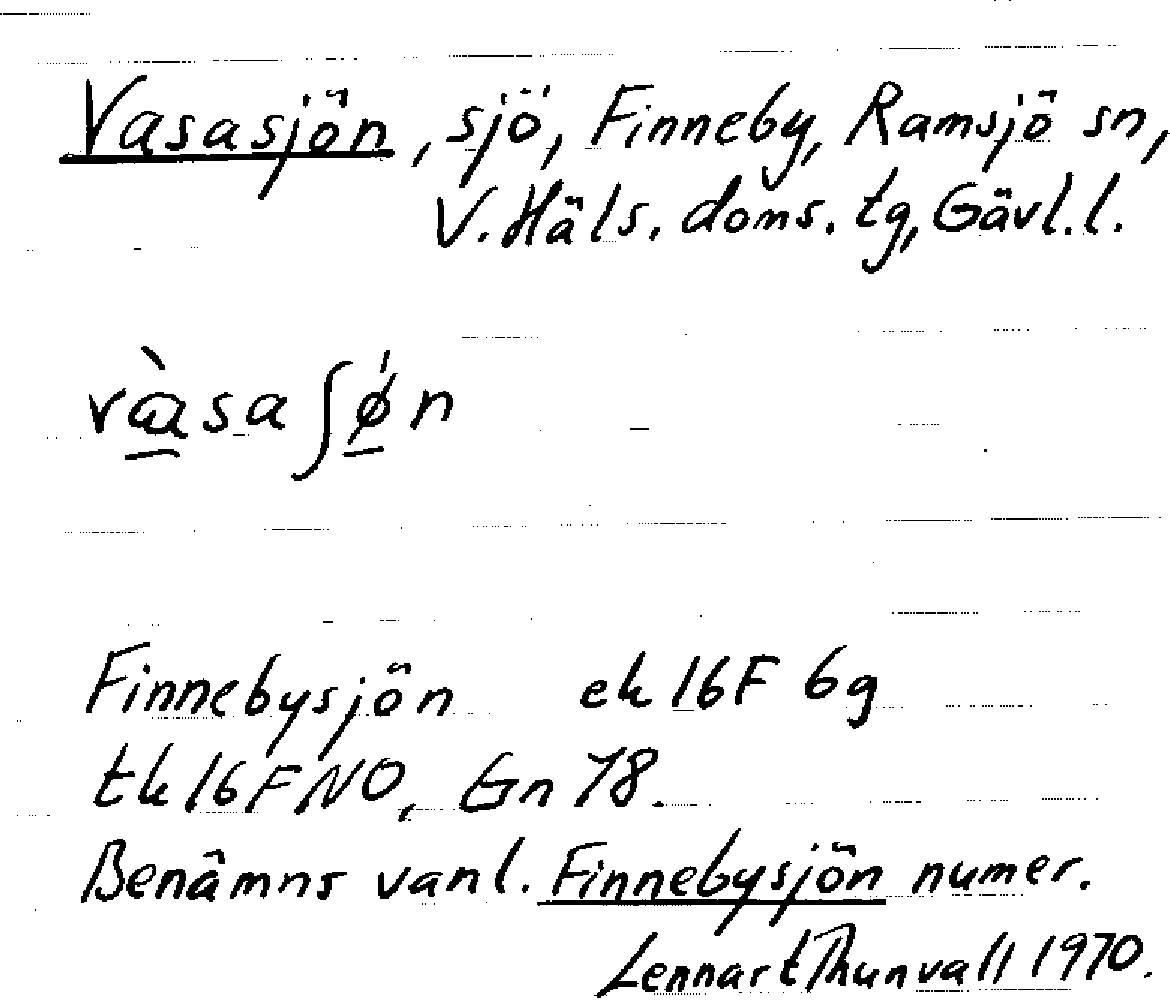 Vasasjön, sjö, Finneby, Ramsjö sn,
V. Häls. doms. tg, Gävl. l.
vàsaʃǿn
Finnebysjön ek 16F 6g
tk 16FNO, Gn 78.
Benämns vanl. Finnebysjön numer.
Lennart Thunvall 1970.